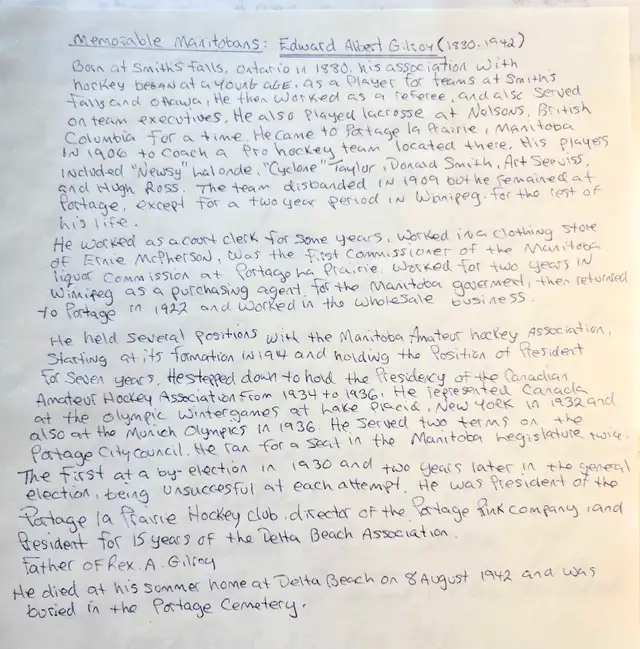 Memorable Manitobans: Edward Albert Gilroy (1880-1942)
Born at Smiths Falls, Ontario in 1880, his association with
hockey began at a young age, as a player for teams at Smith's
Falls and Ottawa, He then worked as a referee, and also served
on team executives. He also played lacrosse at Nelsons, British
Columbia for a time. He came to Portage la Prairie, Manitoba
in 1906 to coach a pro hockey team located there. His players
included "Newsy" Lalonde, "Cyclone" Taylor, Donald Smith, Art Serviss,
and Hugh Ross. The team disbanded in 1909 but he remained at
Portage, except for a two year period in Winnipeg, for the rest of
his life.
He worked as a court clerk for some years, worked in a clothing store
of Ernie McPherson, was the first Commissioner of the Manitoba
liquor Commission at Portage La Prairie, worked for two years in
Winnipeg as a purchasing agent, for the Manitoba goverment, then returned
to Portage in 1922 and worked in the wholesale business.
He held several positions with the Manitoba Amateur hockey Association,
Starting at its formation in 1914 and holding the position of President
for seven years. He stepped down to hold the Presidency of the Canadian
Amateur Hockey Association from 1934 to 1936. He represented Canada
at the Olympic Wintergames at Lake Placid, New York in 1932 and
also at the Munich Olympics in 1936. He served two terms on the
Portage City council. He ran for a seat in the Manitoba Legislature twice.
The first at a by-election in 1930 and two years later in the general
election, being unsuccesful at each attempt. He was President of the
Portage la Prairie Hockey club, director of the Portage Rink company, and
President for 15 years of the Delta Beach Association.
Father of Rex. A. Gilroy
He died at his sommer home at Delta Beach on 8 August 1942 and was
buried in the Portage Cemetery.